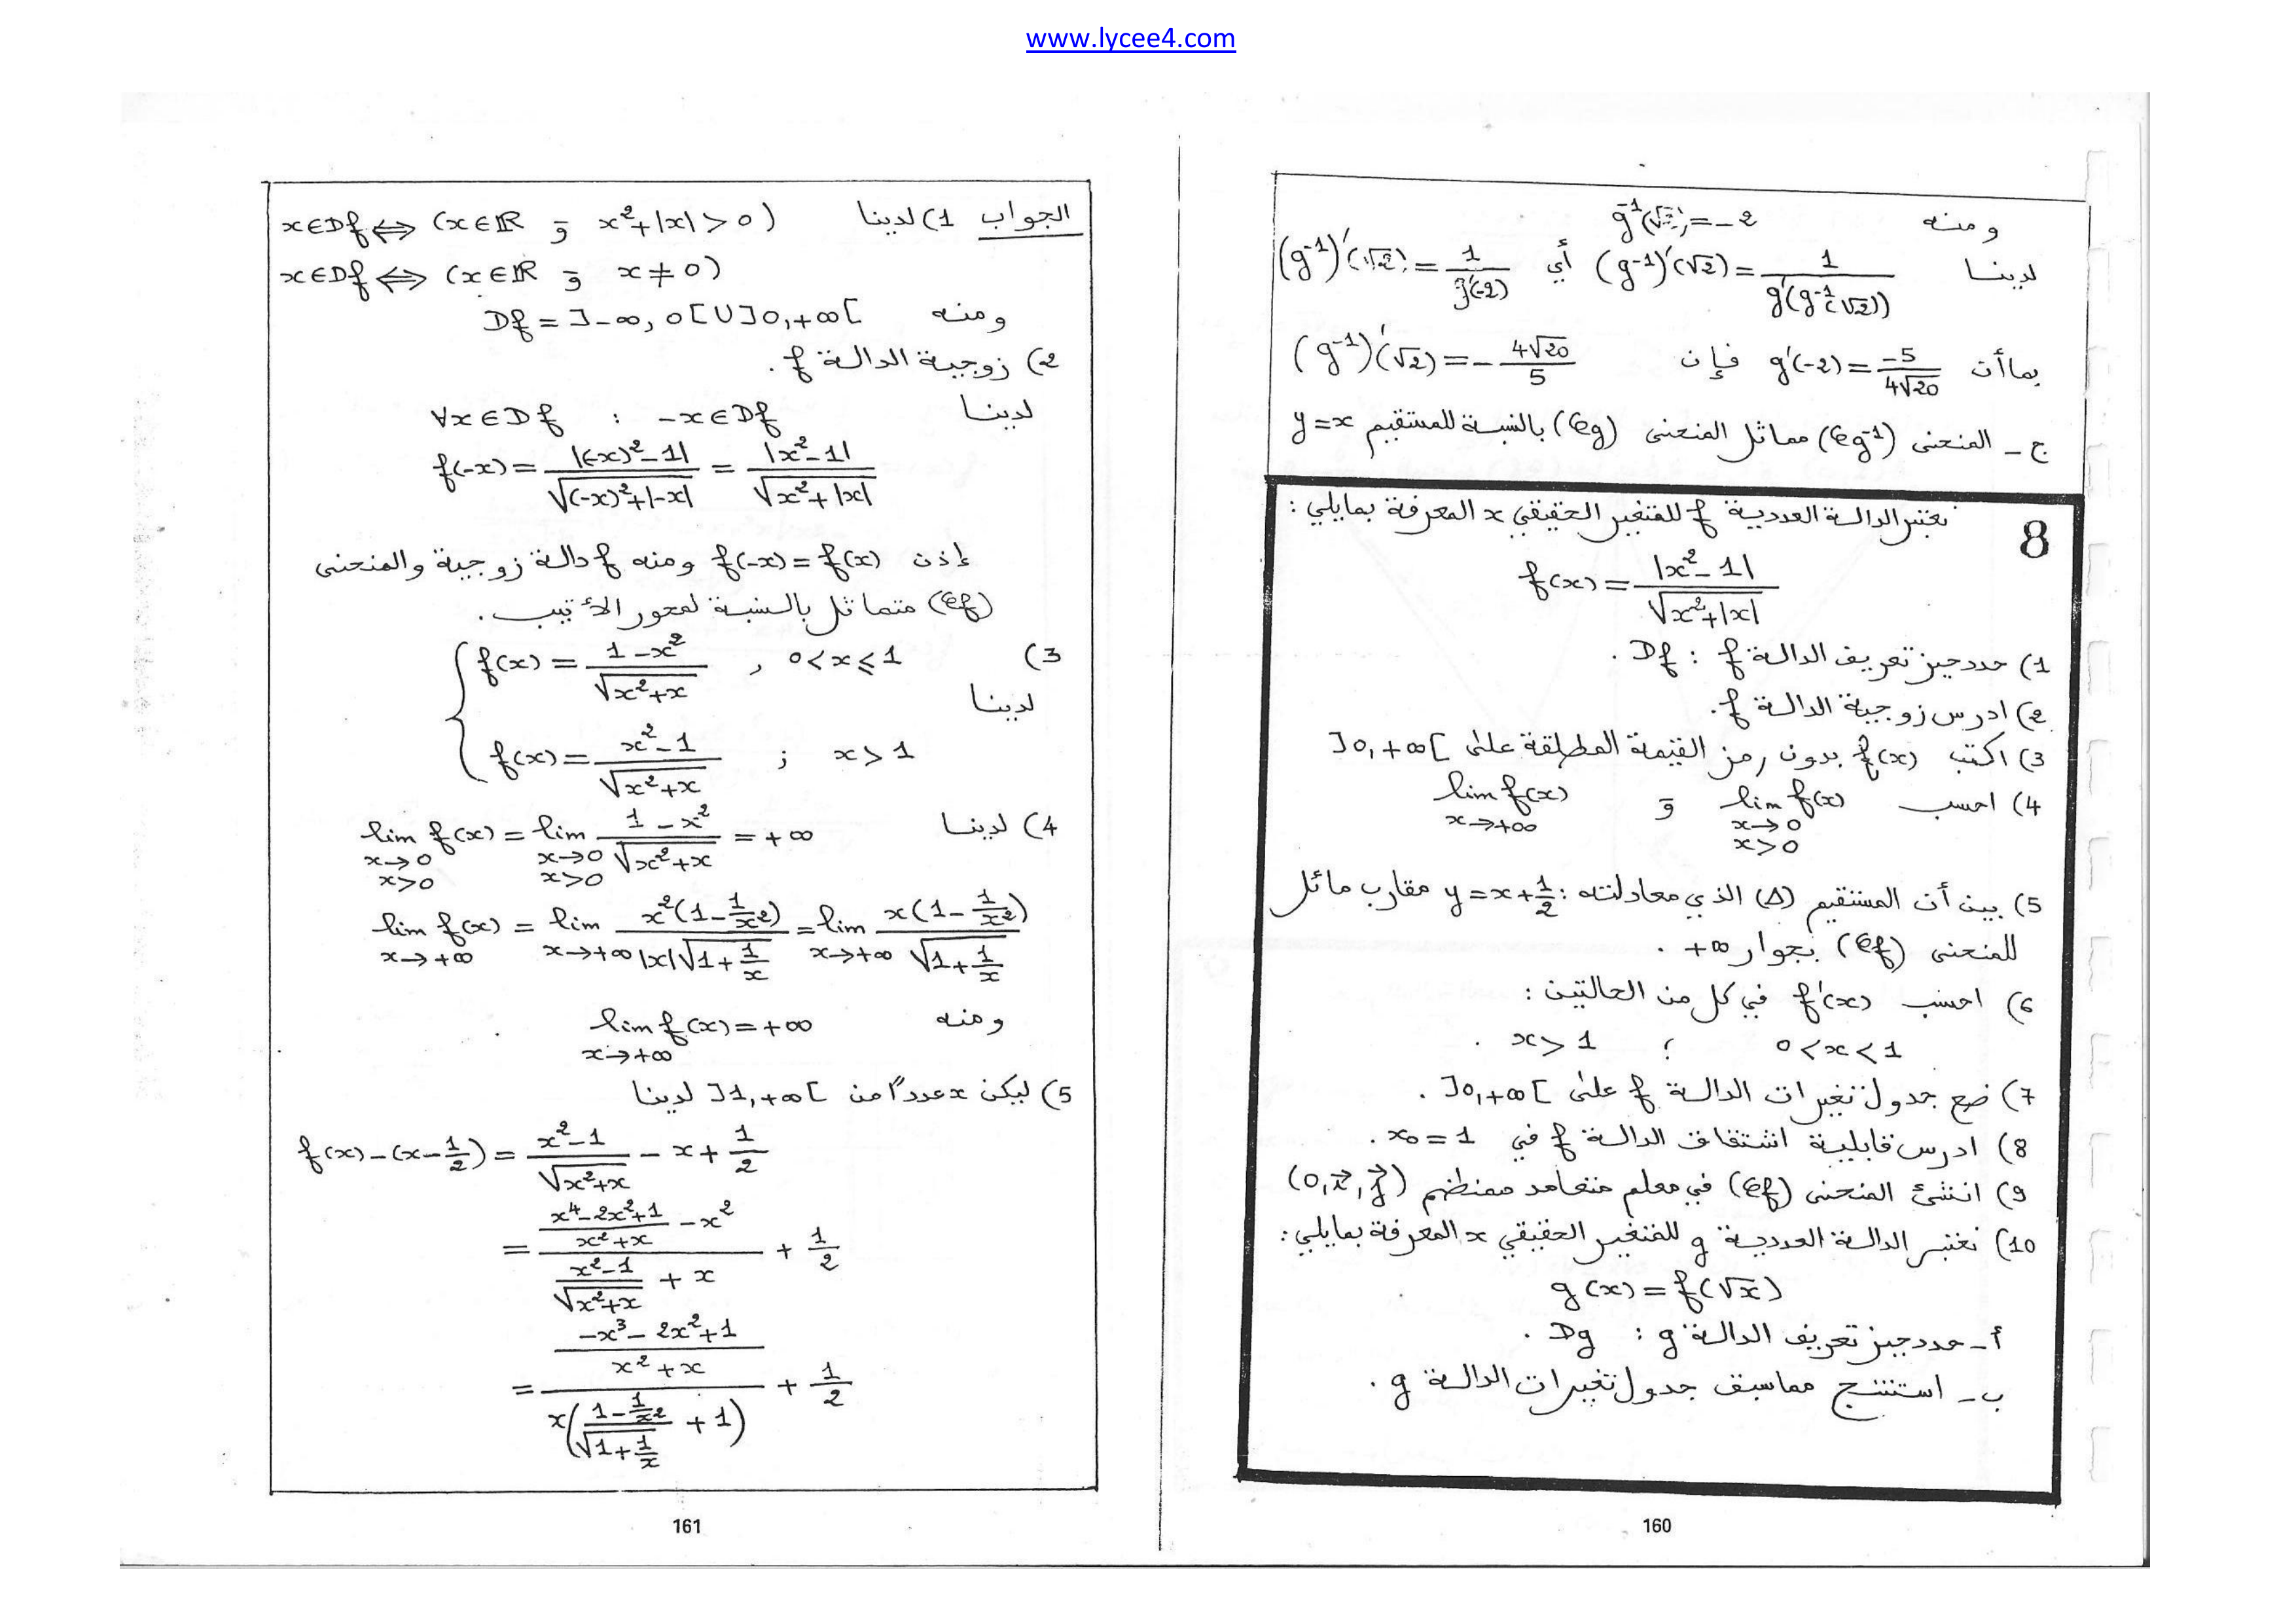 www.lycee4.com
ومنه g⁻¹(√2) = -2
لدينا (g⁻¹)'(√2) = 1/g'(g⁻¹(√2)) أي (g⁻¹)'(√2) = 1/g'(-2)
بما أن g'(-2) = -5/(4√20) فإن (g⁻¹)'(√2) = -4√20/5
ج - المنحنى (𝒞g⁻¹) مماثل المنحنى (𝒞g) بالنسبة للمستقيم y=x
8
نعتبر الدالة العددية f للمتغير الحقيقي x المعرفة بمايلي :
f(x) = |x²-1|/√(x²+|x|)
1) حدد حيز تعريف الدالة f : Df .
2) ادرس زوجية الدالة f.
3) اكتب f(x) بدون رمز القيمة المطلقة على ]0,+∞[
4) احسب lim f(x) x→0 x>0 و lim f(x) x→+∞
5) بين أن المستقيم (Δ) الذي معادلته : y=x+1/2 مقارب مائل
للمنحنى (𝒞f) بجوار +∞ .
6) احسب f'(x) في كل من الحالتين :
0<x<1 ; x>1 .
7) ضع جدول تغيرات الدالة f على ]0,+∞[ .
8) ادرس قابلية اشتقاق الدالة f في x₀=1 .
9) انشئ المنحنى (𝒞f) في معلم متعامد ممنظم (O,i⃗,j⃗)
10) نعتبر الدالة العددية g للمتغير الحقيقي x المعرفة بمايلي :
g(x) = f(√x)
أ - حدد حيز تعريف الدالة g : Dg .
ب - استنتج مما سبق جدول تغيرات الدالة g .
160
الجواب 1) لدينا x∈Df ⇔ (x∈ℝ و x²+|x|>0)
x∈Df ⇔ (x∈ℝ و x≠0)
ومنه Df = ]-∞,0[ U ]0,+∞[
2) زوجية الدالة f .
لدينا ∀x∈Df : -x∈Df
f(-x) = |(-x)²-1|/√((-x)²+|-x|) = |x²-1|/√(x²+|x|)
إذن f(-x) = f(x) ومنه f دالة زوجية والمنحنى
(𝒞f) متماثل بالنسبة لمحور الأتيب .
3) لدينا { f(x) = (1-x²)/√(x²+x) , 0<x⩽1
f(x) = (x²-1)/√(x²+x) ; x>1
4) لدينا lim f(x) x→0 x>0 = lim x→0 x>0 (1-x²)/√(x²+x) = +∞
lim f(x) x→+∞ = lim x→+∞ x²(1-1/x²)/(|x|√(1+1/x)) = lim x→+∞ x(1-1/x²)/√(1+1/x)
ومنه lim f(x) = +∞ x→+∞
5) ليكن x عدداً من ]1,+∞[ لدينا
f(x)-(x-1/2) = (x²-1)/√(x²+x) - x + 1/2
= ((x⁴-2x²+1)/(x²+x) - x²)/((x²-1)/√(x²+x) + x) + 1/2
= ((-x³-2x²+1)/(x²+x))/(x((1-1/x²)/√(1+1/x) + 1)) + 1/2
161